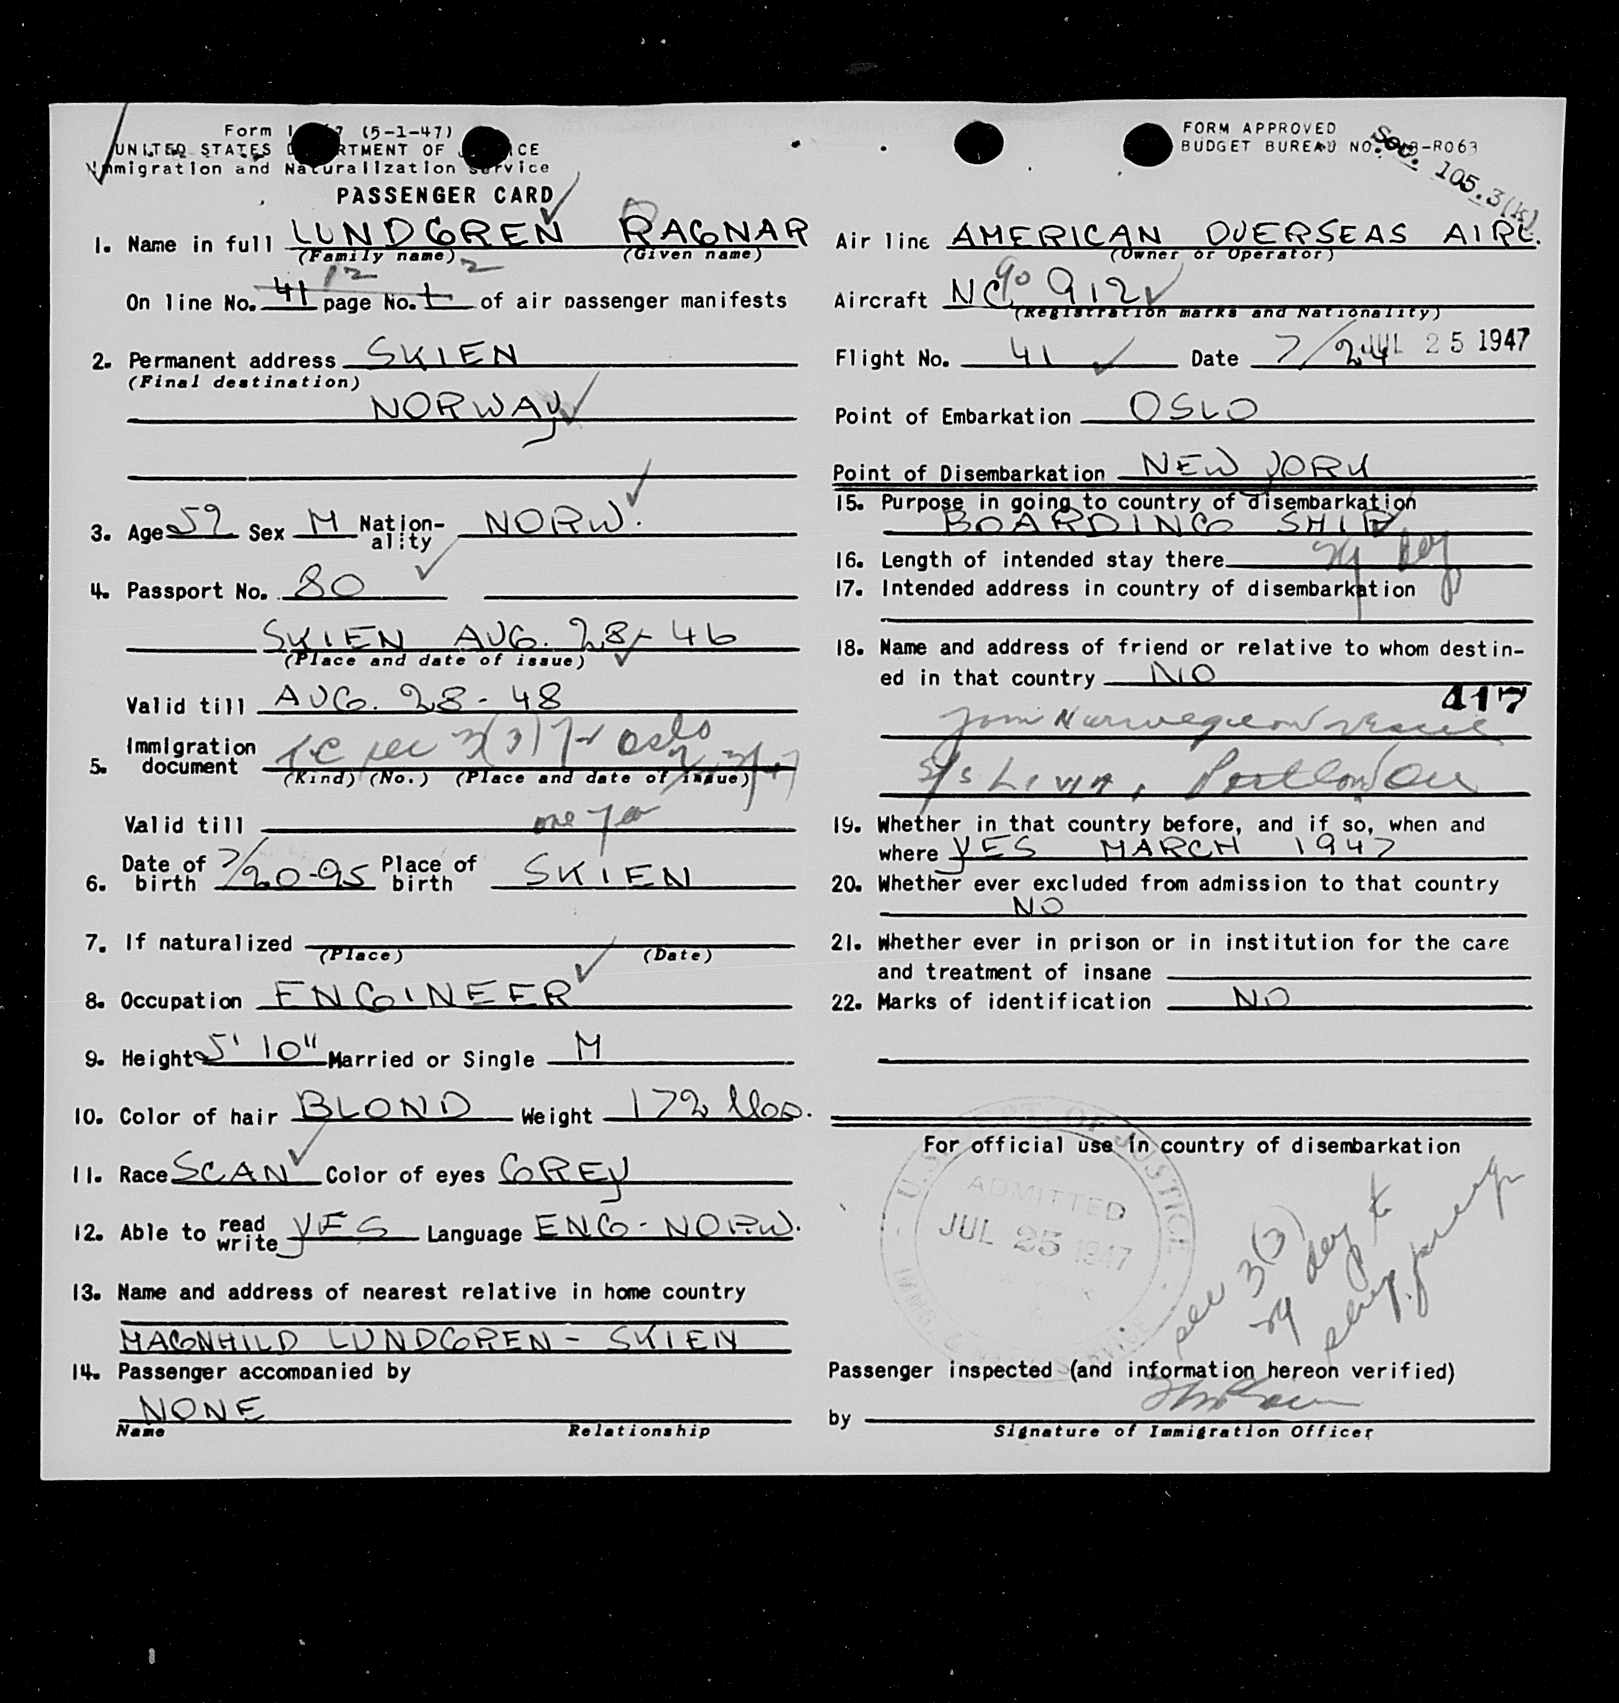 Form I 7 (5-1-47)
UNITED STATES D RTMENT OF J ICE
Immigration and Naturalization Service
PASSENGER CARD
1. Name in full LUNDGREN RAGNAR
(Family name) (Given name)
12 2
On line No. 41 page No. 1 of air passenger manifests
2. Permanent address SKIEN
(Final destination)
NORWAY
3. Age 52 Sex M Nation-ality NORW.
4. Passport No. 80
SKIEN AUG. 28 - 46
(Place and date of issue)
Valid till AUG. 28 - 48
5. Immigration document sec 3(3) Oslo
(Kind) (No.) (Place and date of issue)
Valid till one
6. Date of birth 7/20-95 Place of birth SKIEN
7. If naturalized
(Place) (Date)
8. Occupation ENGINEER
9. Height 5' 10" Married or Single M
10. Color of hair BLOND Weight 172 lbs.
11. Race SCAN Color of eyes GREY
12. Able to read write YES Language ENG - NORW.
13. Name and address of nearest relative in home country
MAGNHILD LUNDGREN - SKIEN
14. Passenger accompanied by
NONE
Name Relationship
FORM APPROVED
BUDGET BUREAU NO. -R063
Sec. 105.3(k)
Air line AMERICAN OVERSEAS AIRL.
(Owner or Operator)
90
Aircraft NC 912
(Registration marks and Nationality)
Flight No. 41 Date 7/24 JUL 25 1947
Point of Embarkation OSLO
Point of Disembarkation NEW YORK
15. Purpose in going to country of disembarkation
BOARDING SHIP
16. Length of intended stay there 29 day
17. Intended address in country of disembarkation
18. Name and address of friend or relative to whom destin-
ed in that country NO
417
Join Norwegian vessel
S/s Portland Ore
19. Whether in that country before, and if so, when and
where YES MARCH 1947
20. Whether ever excluded from admission to that country
NO
21. Whether ever in prison or in institution for the care
and treatment of insane
22. Marks of identification NO
For official use in country of disembarkation
U.S. DEPT. OF JUSTICE
ADMITTED
JUL 25 1947
sec 3(3)
29 day to
Passenger inspected (and information hereon verified)
by
Signature of Immigration Officer